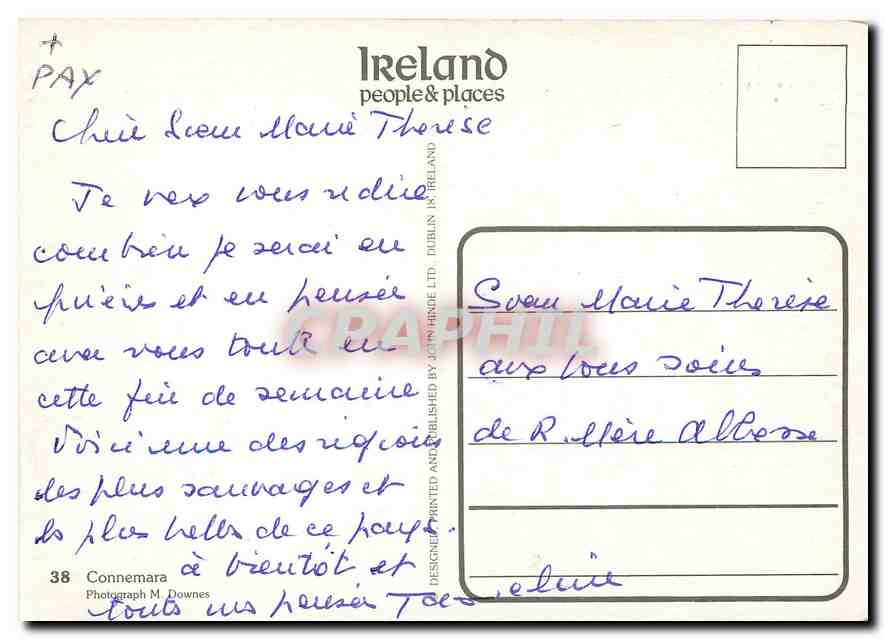 +
PAX
Ireland
people & places
Chère Soeur Marie Thérèse
Je veux vous redire
combien je serai en
prières et en pensée
avec vous toute en
cette fin de semaine
Voici une des régions
les plus sauvages et
les plus belles de ce pays.
à bientôt et
toutes mes pensées
Soeur Marie Thérèse
aux bons soins
de R. Mère Abbesse
38 Connemara
Photograph M. Downes
DESIGNED, PRINTED AND PUBLISHED BY JOHN HINDE LTD., DUBLIN 18, IRELAND
CPAPHIL